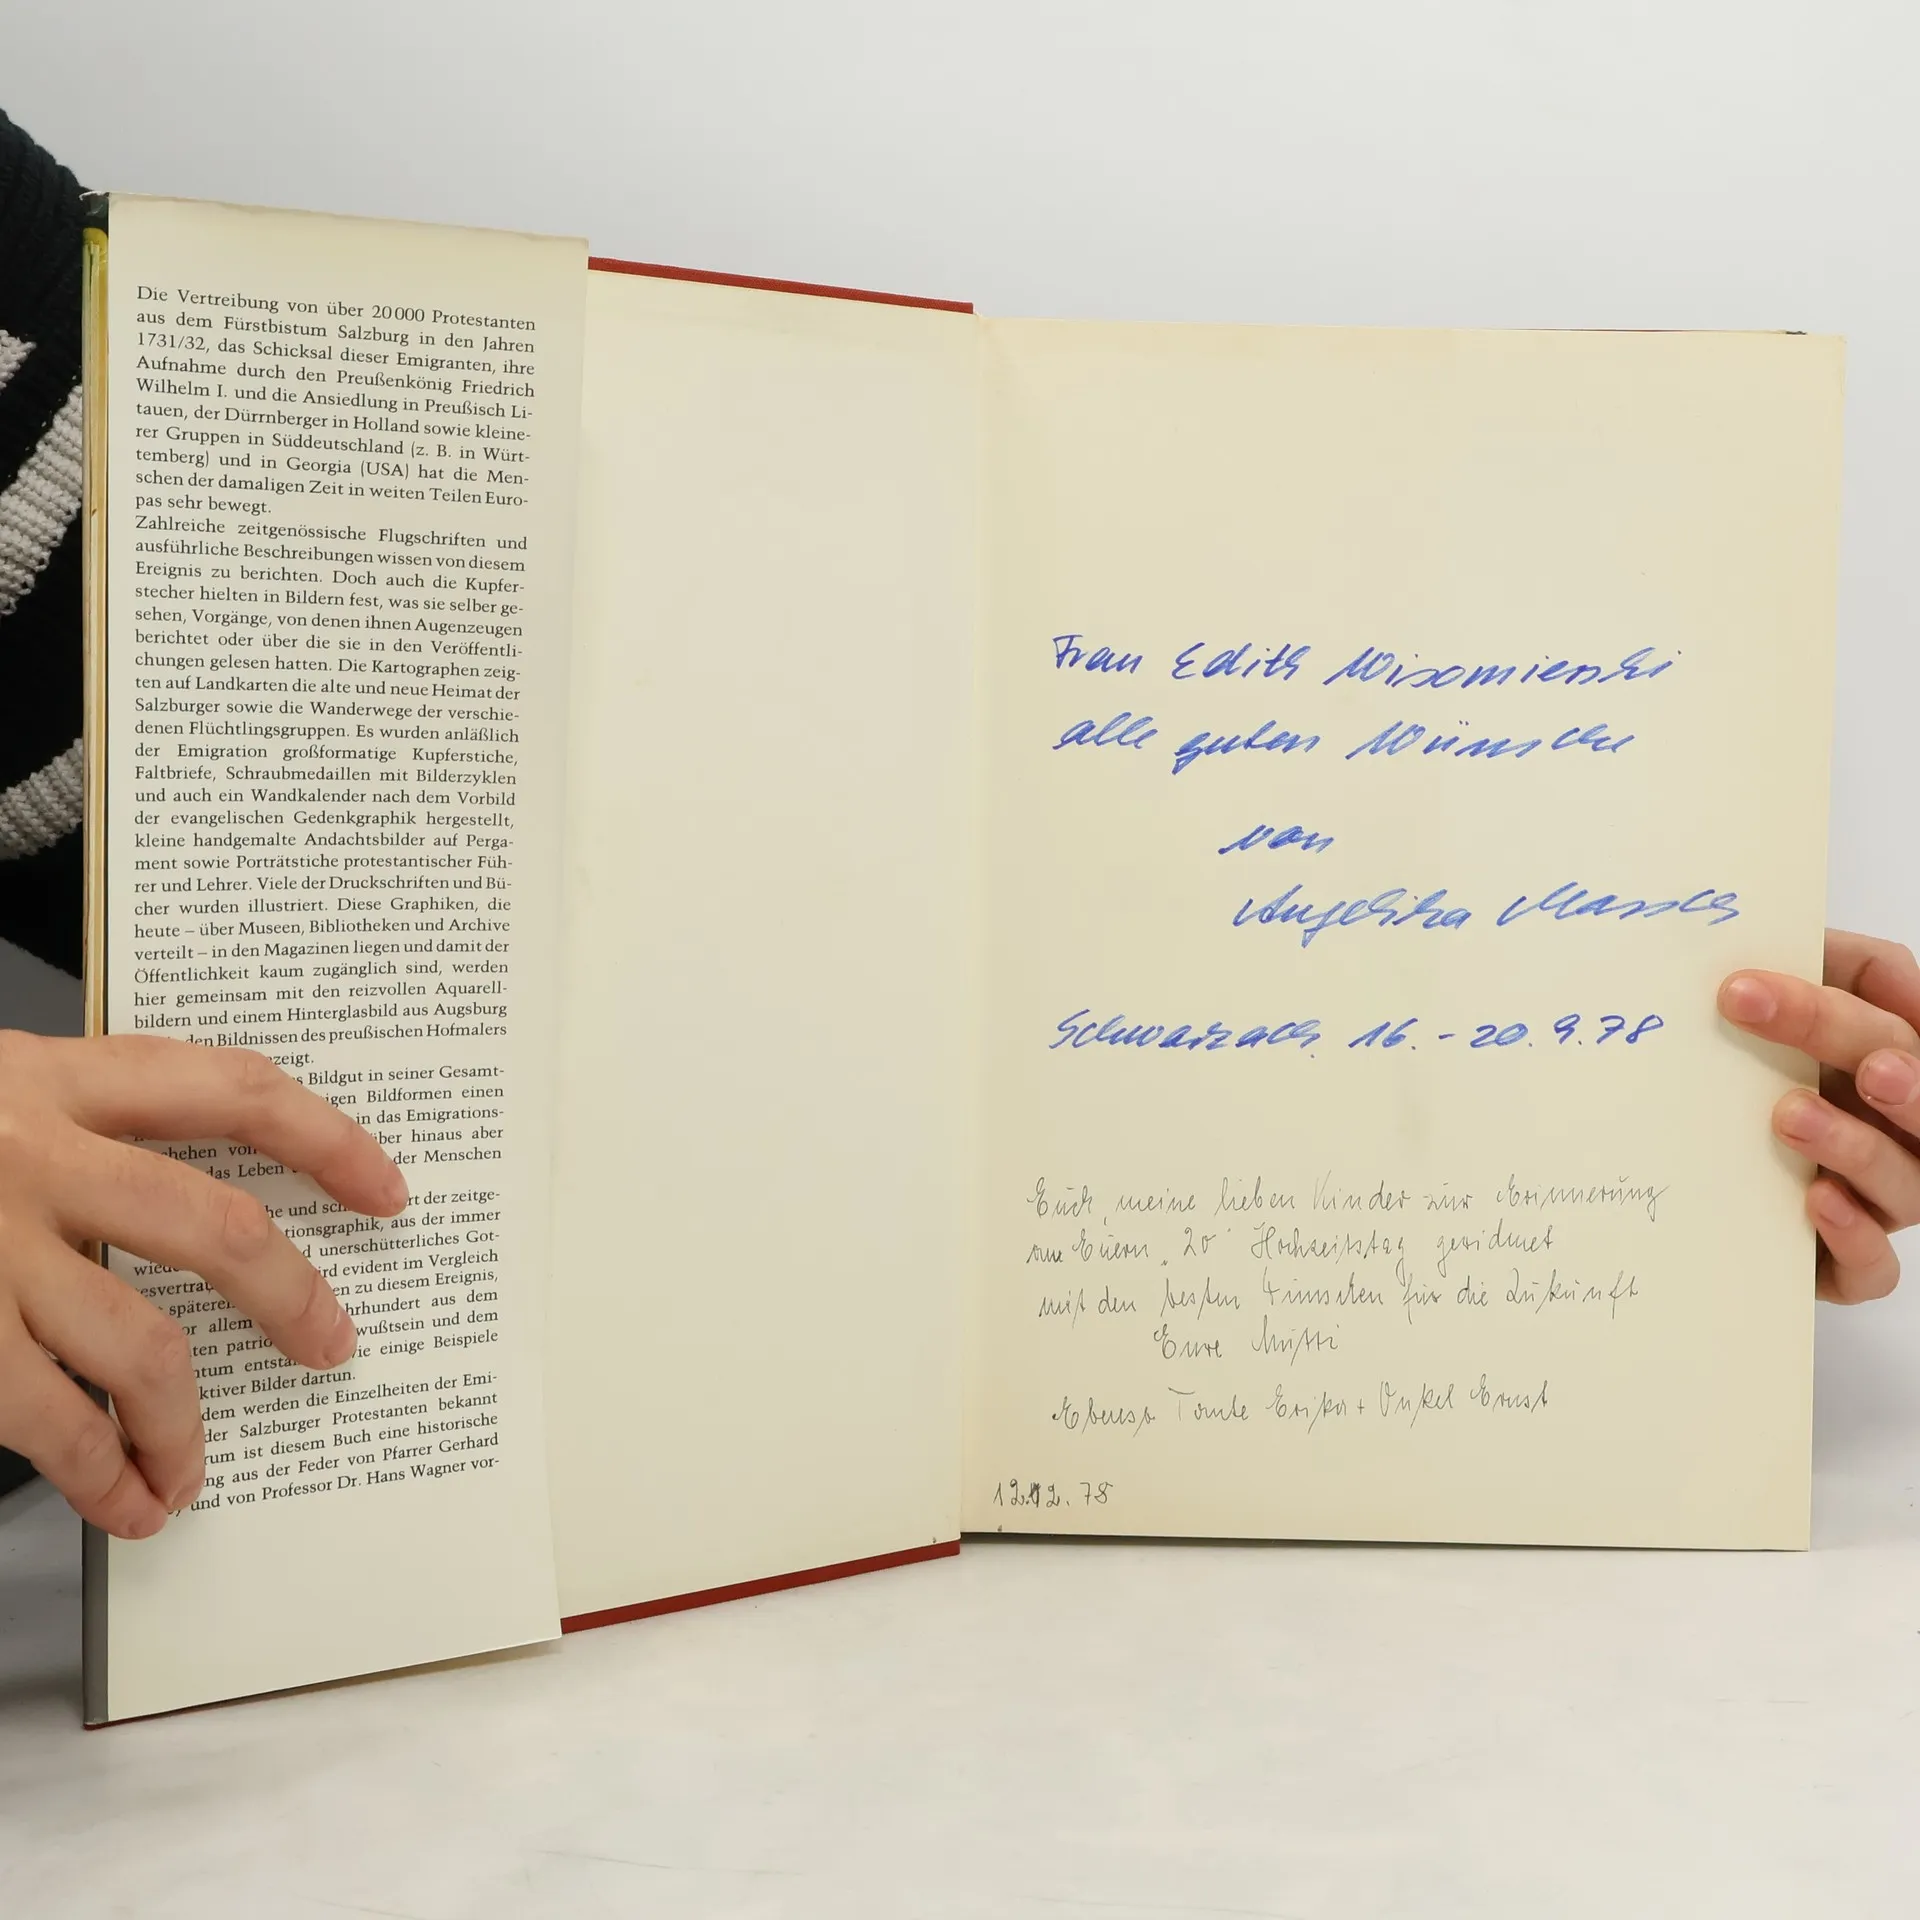 Die Vertreibung von über 20000 Protestanten
aus dem Fürstbistum Salzburg in den Jahren
1731/32, das Schicksal dieser Emigranten, ihre
Aufnahme durch den Preußenkönig Friedrich
Wilhelm I. und die Ansiedlung in Preußisch Li-
tauen, der Dürrnberger in Holland sowie kleine-
rer Gruppen in Süddeutschland (z. B. in Würt-
temberg) und in Georgia (USA) hat die Men-
schen der damaligen Zeit in weiten Teilen Euro-
pas sehr bewegt.
Zahlreiche zeitgenössische Flugschriften und
ausführliche Beschreibungen wissen von diesem
Ereignis zu berichten. Doch auch die Kupfer-
stecher hielten in Bildern fest, was sie selber ge-
sehen, Vorgänge, von denen ihnen Augenzeugen
berichtet oder über die sie in den Veröffentli-
chungen gelesen hatten. Die Kartographen zeig-
ten auf Landkarten die alte und neue Heimat der
Salzburger sowie die Wanderwege der verschie-
denen Flüchtlingsgruppen. Es wurden anläßlich
der Emigration großformatige Kupferstiche,
Faltbriefe, Schraubmedaillen mit Bilderzyklen
und auch ein Wandkalender nach dem Vorbild
der evangelischen Gedenkgraphik hergestellt,
kleine handgemalte Andachtsbilder auf Perga-
ment sowie Porträtstiche protestantischer Füh-
rer und Lehrer. Viele der Druckschriften und Bü-
cher wurden illustriert. Diese Graphiken, die
heute – über Museen, Bibliotheken und Archive
verteilt – in den Magazinen liegen und damit der
Öffentlichkeit kaum zugänglich sind, werden
hier gemeinsam mit den reizvollen Aquarell-
bildern und einem Hinterglasbild aus Augsburg
den Bildnissen des preußischen Hofmalers
zeigt.
Bildgut in seiner Gesamt-
igen Bildformen einen
in das Emigrations-
hehen von über hinaus aber
das Leben der Menschen
he und sch rt der zeitge-
tionsgraphik, aus der immer
d unerschütterliches Got-
wird evident im Vergleich
esvertrau en zu diesem Ereignis,
späteren hrhundert aus dem
or allem wußtsein und dem
ten patrio wie einige Beispiele
ntum entsta
ktiver Bilder dartun.
dem werden die Einzelheiten der Emi-
der Salzburger Protestanten bekannt
rum ist diesem Buch eine historische
ng aus der Feder von Pfarrer Gerhard
und von Professor Dr. Hans Wagner vor-
Frau Edith Wisomierski
alle guten Wünsche
von
Angelika Marsch
Schwarzach 16. - 20. 9. 78
Euch, meine lieben Kinder zur Erinnerung
an Euern "20" Hochzeitstag gewidmet
mit den besten Wünschen für die Zukunft
Eure Mutti
Ebenso Tante Erika + Onkel Ernst
12.12.78